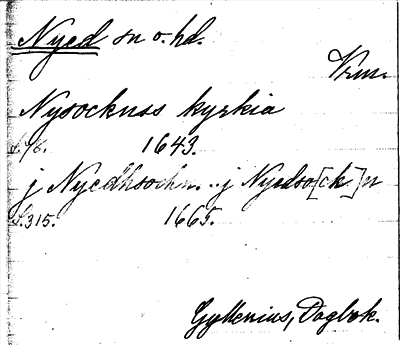 Nyed sn o. hd.
Vrm.
Nysocknss kyrkia
1643.
j Nyedhsochn... j Nyedso[ck]n
S.315. 1665.
Gyllenius, Dagbok.